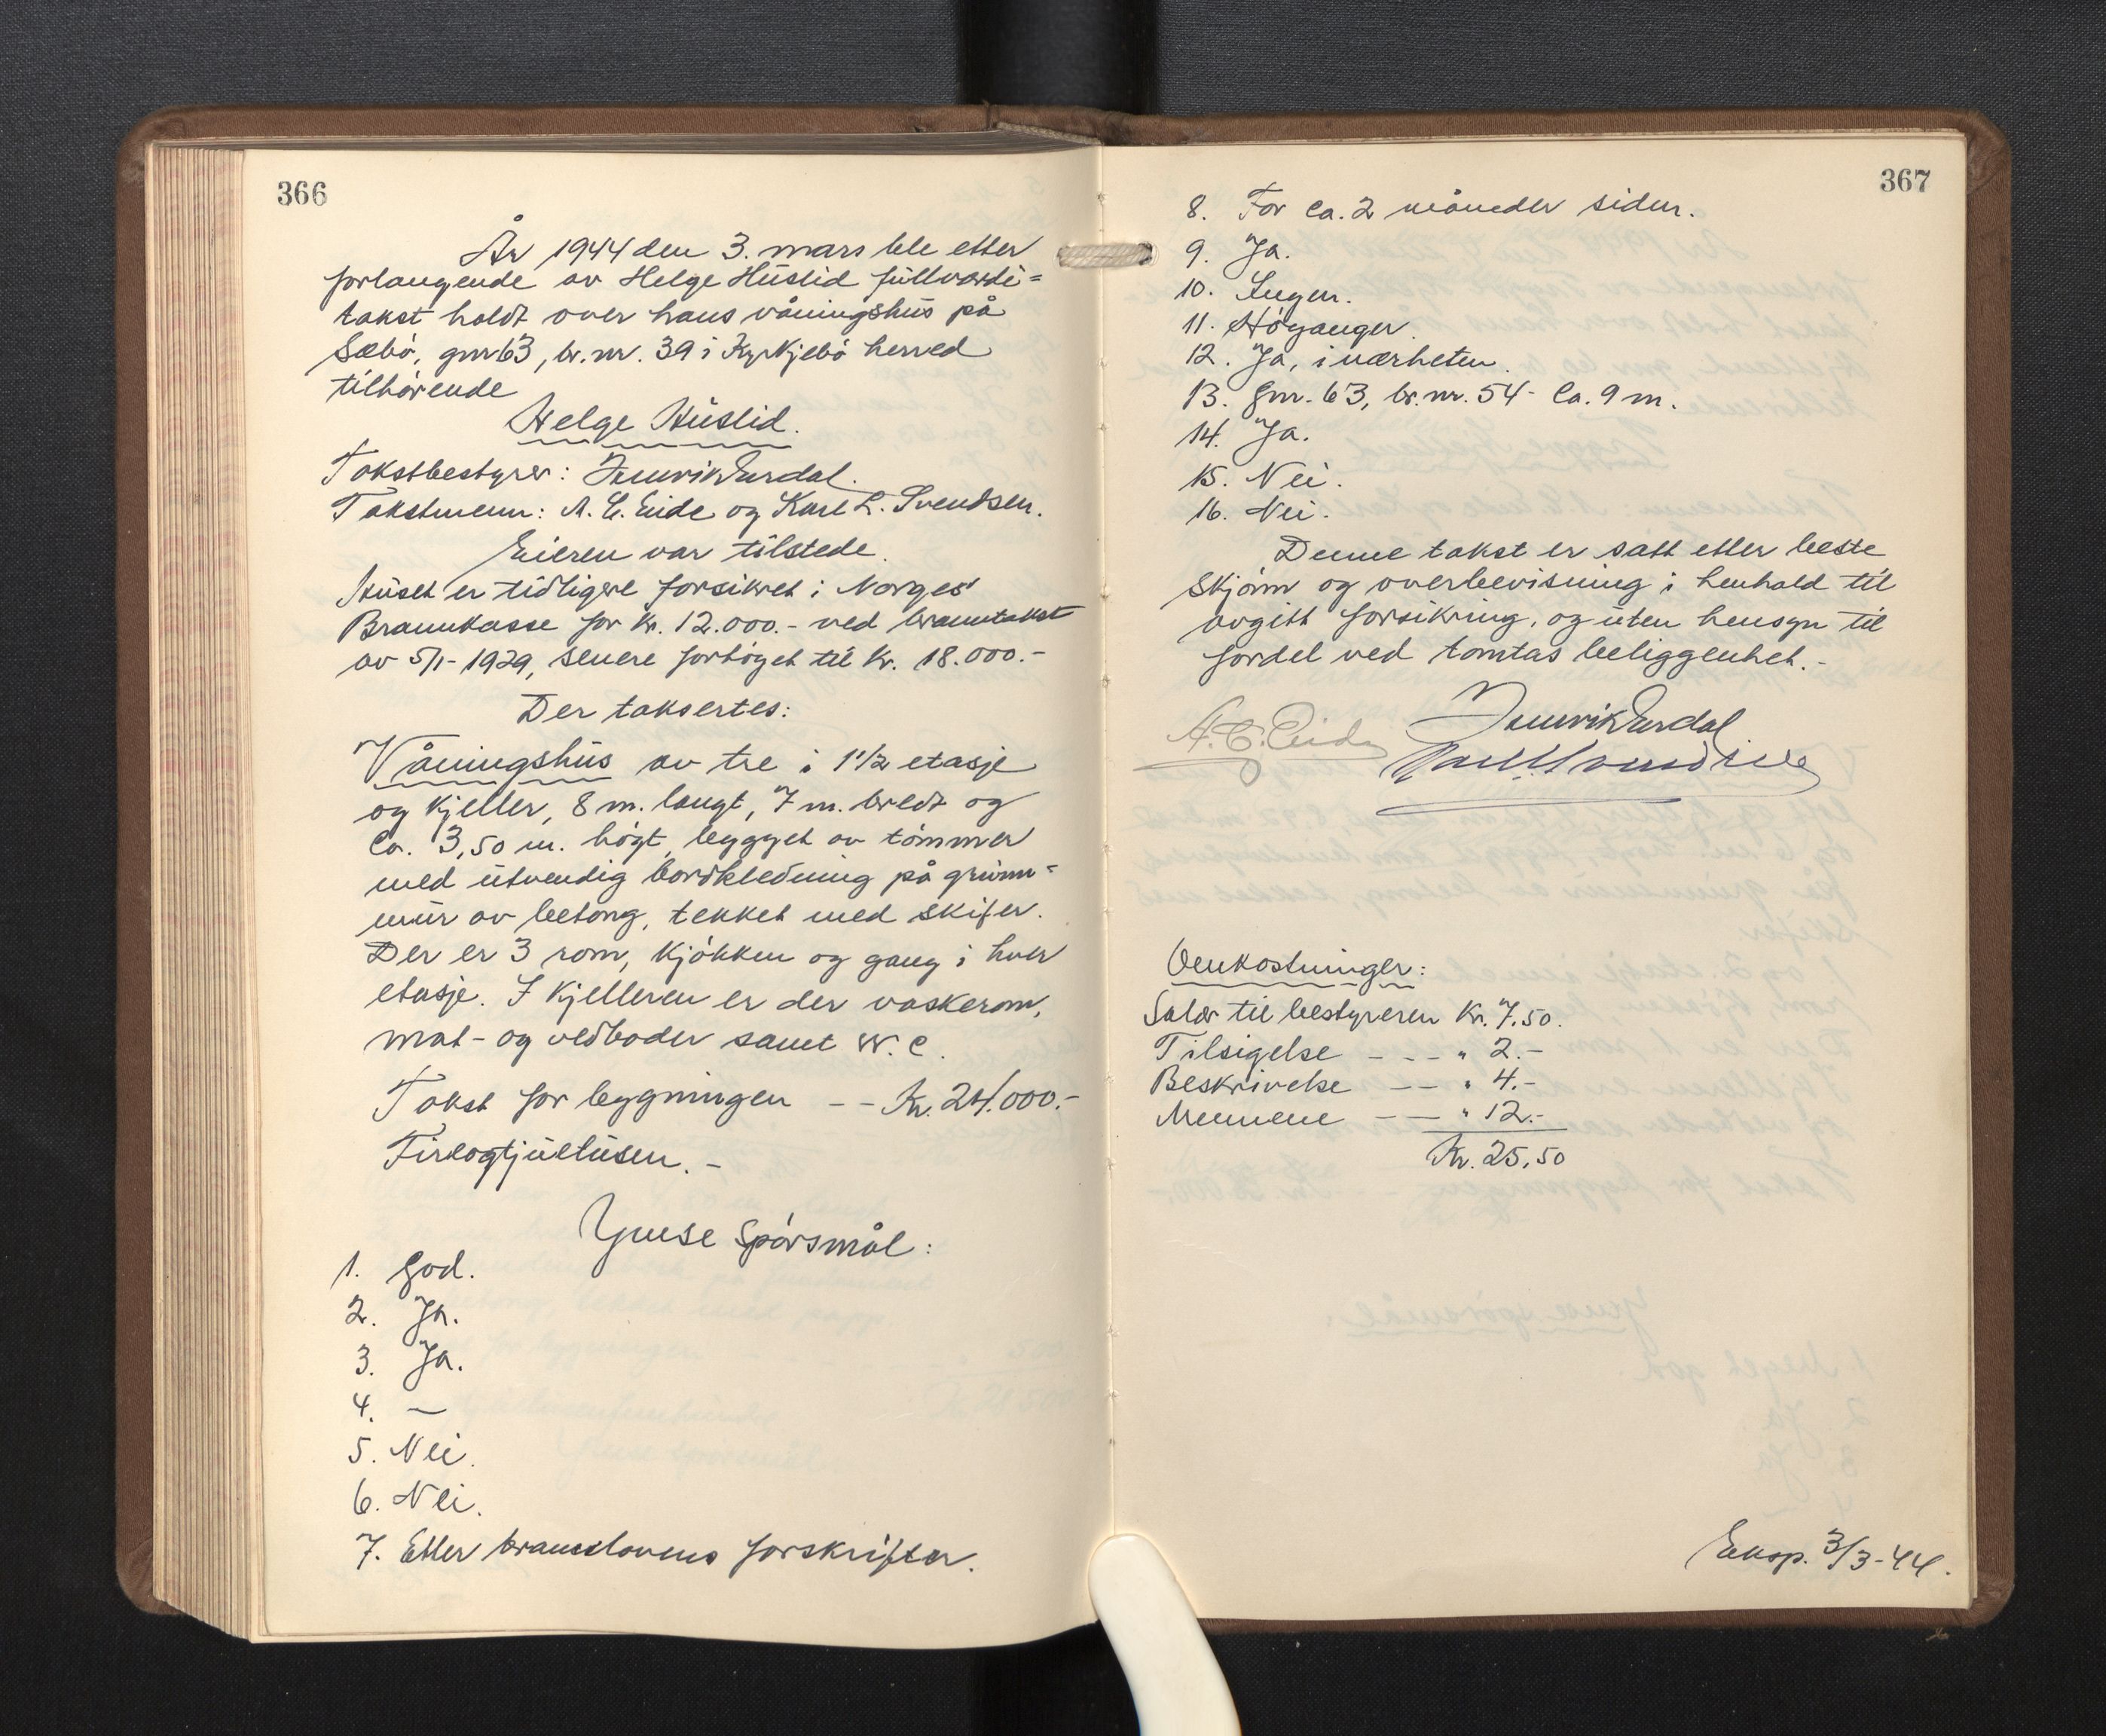 366
År 1944 den 3. mars ble etter
forlangende av Helge Huslid fullverdi=
takst holdt over hans våningshus på
Sæbö, gnr 63, br. nr. 39 i Kyrkjebö herred
tilhörende
Helge Huslid.
Takstbestyrer: Henrik Eurdal.
Takstmenn: A. C. Eide og Karl L. Svendsen.
Eieren var tilstede.
Huset er tidligere forsikret i Norges
Brannkasse for kr. 12.000.- ved branntakst
av 5/1-1929, senere forhöyet til kr. 18.000.-
Der taksertes:
Våningshus av tre i 1 1/2 etasje
og kjeller, 8 m. langt, 7 m. bredt og
ca. 3,50 m. högt, bygget av tömmer
med utvendig bordkledning på grunn=
mur av betong, tekket med skifer.
Der er 3 rom, kjökken og gang i hver
etasje. I kjelleren er der vaskerom,
mat- og vedboder samt W.C.
Takst for bygningen -- Kr. 24.000.-
Fireogtjuetusen.-
Ymse Spörsmål:
1. God.
2. Ja.
3. Ja.
4. —
5. Nei.
6. Nei.
7. Etter brannlovens forskrifter.
367
8. For ca. 2 måneder siden.
9. Ja.
10. Ingen.
11. Höyanger.
12. Ja, i nærheten.
13. Gnr. 63, br. nr. 54 - ca. 9 m.
14. Ja.
15. Nei.
16. Nei.
Denne takst er satt etter beste
skjönn og overbevisning i henhold til
avgitt forsikring, og uten hensyn til
fordel ved tomtas beliggenhet.-
A. C. Eide
Karl L. Svendsen
Omkostninger:
Salær til bestyreren Kr. 7.50.
Tilsigelse - - - " 2.-
Beskrivelse — - " 4.-
Mennene - — " 12.-
Kr. 25,50
Eksp. 3/3-44.